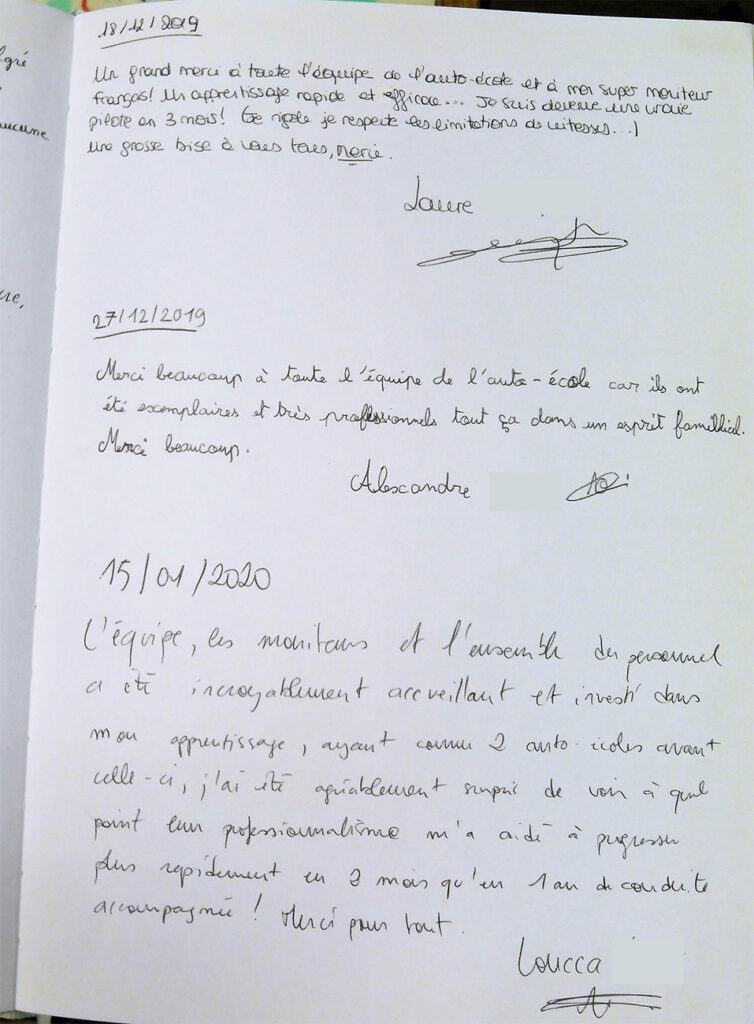 gré
aucune
ue,
18/12/2019
Un grand merci à toute l'équipe de l'auto-école et à mon super moniteur
français! Un apprentissage rapide et efficace... Je suis devenue une vraie
pilote en 3 mois! (Je rigole je respecte les limitations de vitesses...)
Une grosse bise à vous tous, merci.
Laure
27/12/2019
Merci beaucoup à toute l'équipe de l'auto-école car ils ont
été exemplaires et très professionnels tout ça dans un esprit famillial.
Merci beaucoup.
Alexandre
15/01/2020
L'équipe, les moniteurs et l'ensemble du personnel
a été incroyablement accueillant et investi dans
mon apprentissage, ayant connu 2 auto-écoles avant
celle-ci, j'ai été agréablement surpris de voir à quel
point leur professionnalisme m'a aidé à progresser
plus rapidement en 2 mois qu'en 1 an de conduite
accompagnée! Merci pour tout.
Loucca